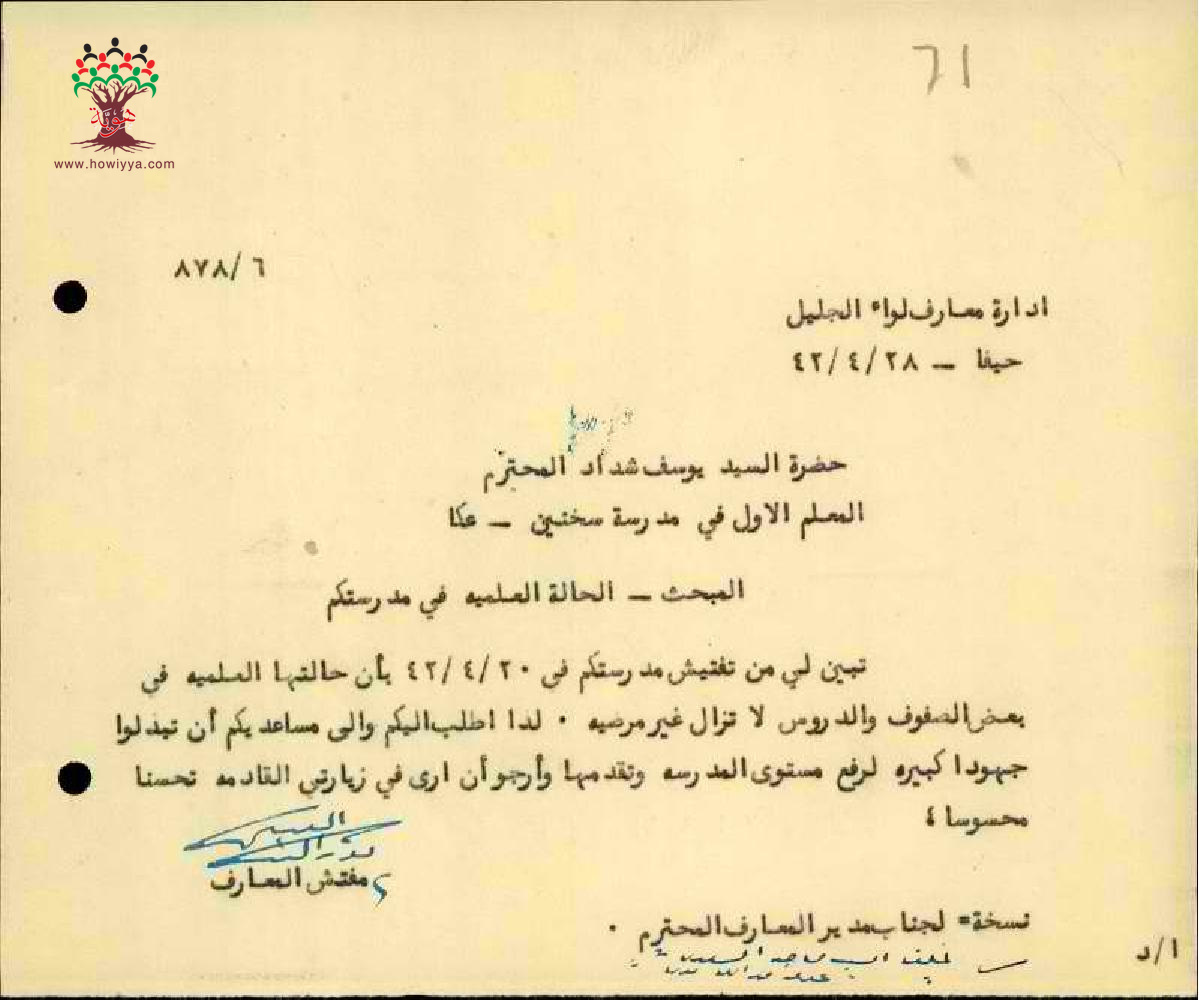 هوية
www.howiyya.com
٦١
٨٧٨/٦
ادارة معارف لواء الجليل
حيفا — ٤٢/٤/٢٨
حضرة السيد يوسف شداد المحترم
المعلم الاول في مدرسة سخنين — عكا
المبحث — الحالة العلميه في مدرستكم
تبين لي من تفتيش مدرستكم في ٤٢/٤/٢٠ بأن حالتها العلميه في
بعض الصفوف والدروس لا تزال غير مرضيه ٠ لذا اطلب اليكم والى مساعديكم أن تبذلوا
جهودا كبيره لرفع مستوى المدرسه وتقدمها وأرجو أن ارى في زيارتي القادمه تحسنا
محسوسا ؛
مفتش المعارف
نسخة= لجناب مدير المعارف المحترم ٠
ا/د